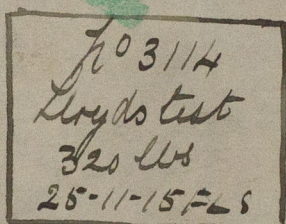 No 3114
Lloyds test
320 lbs
25-11-15 FLS